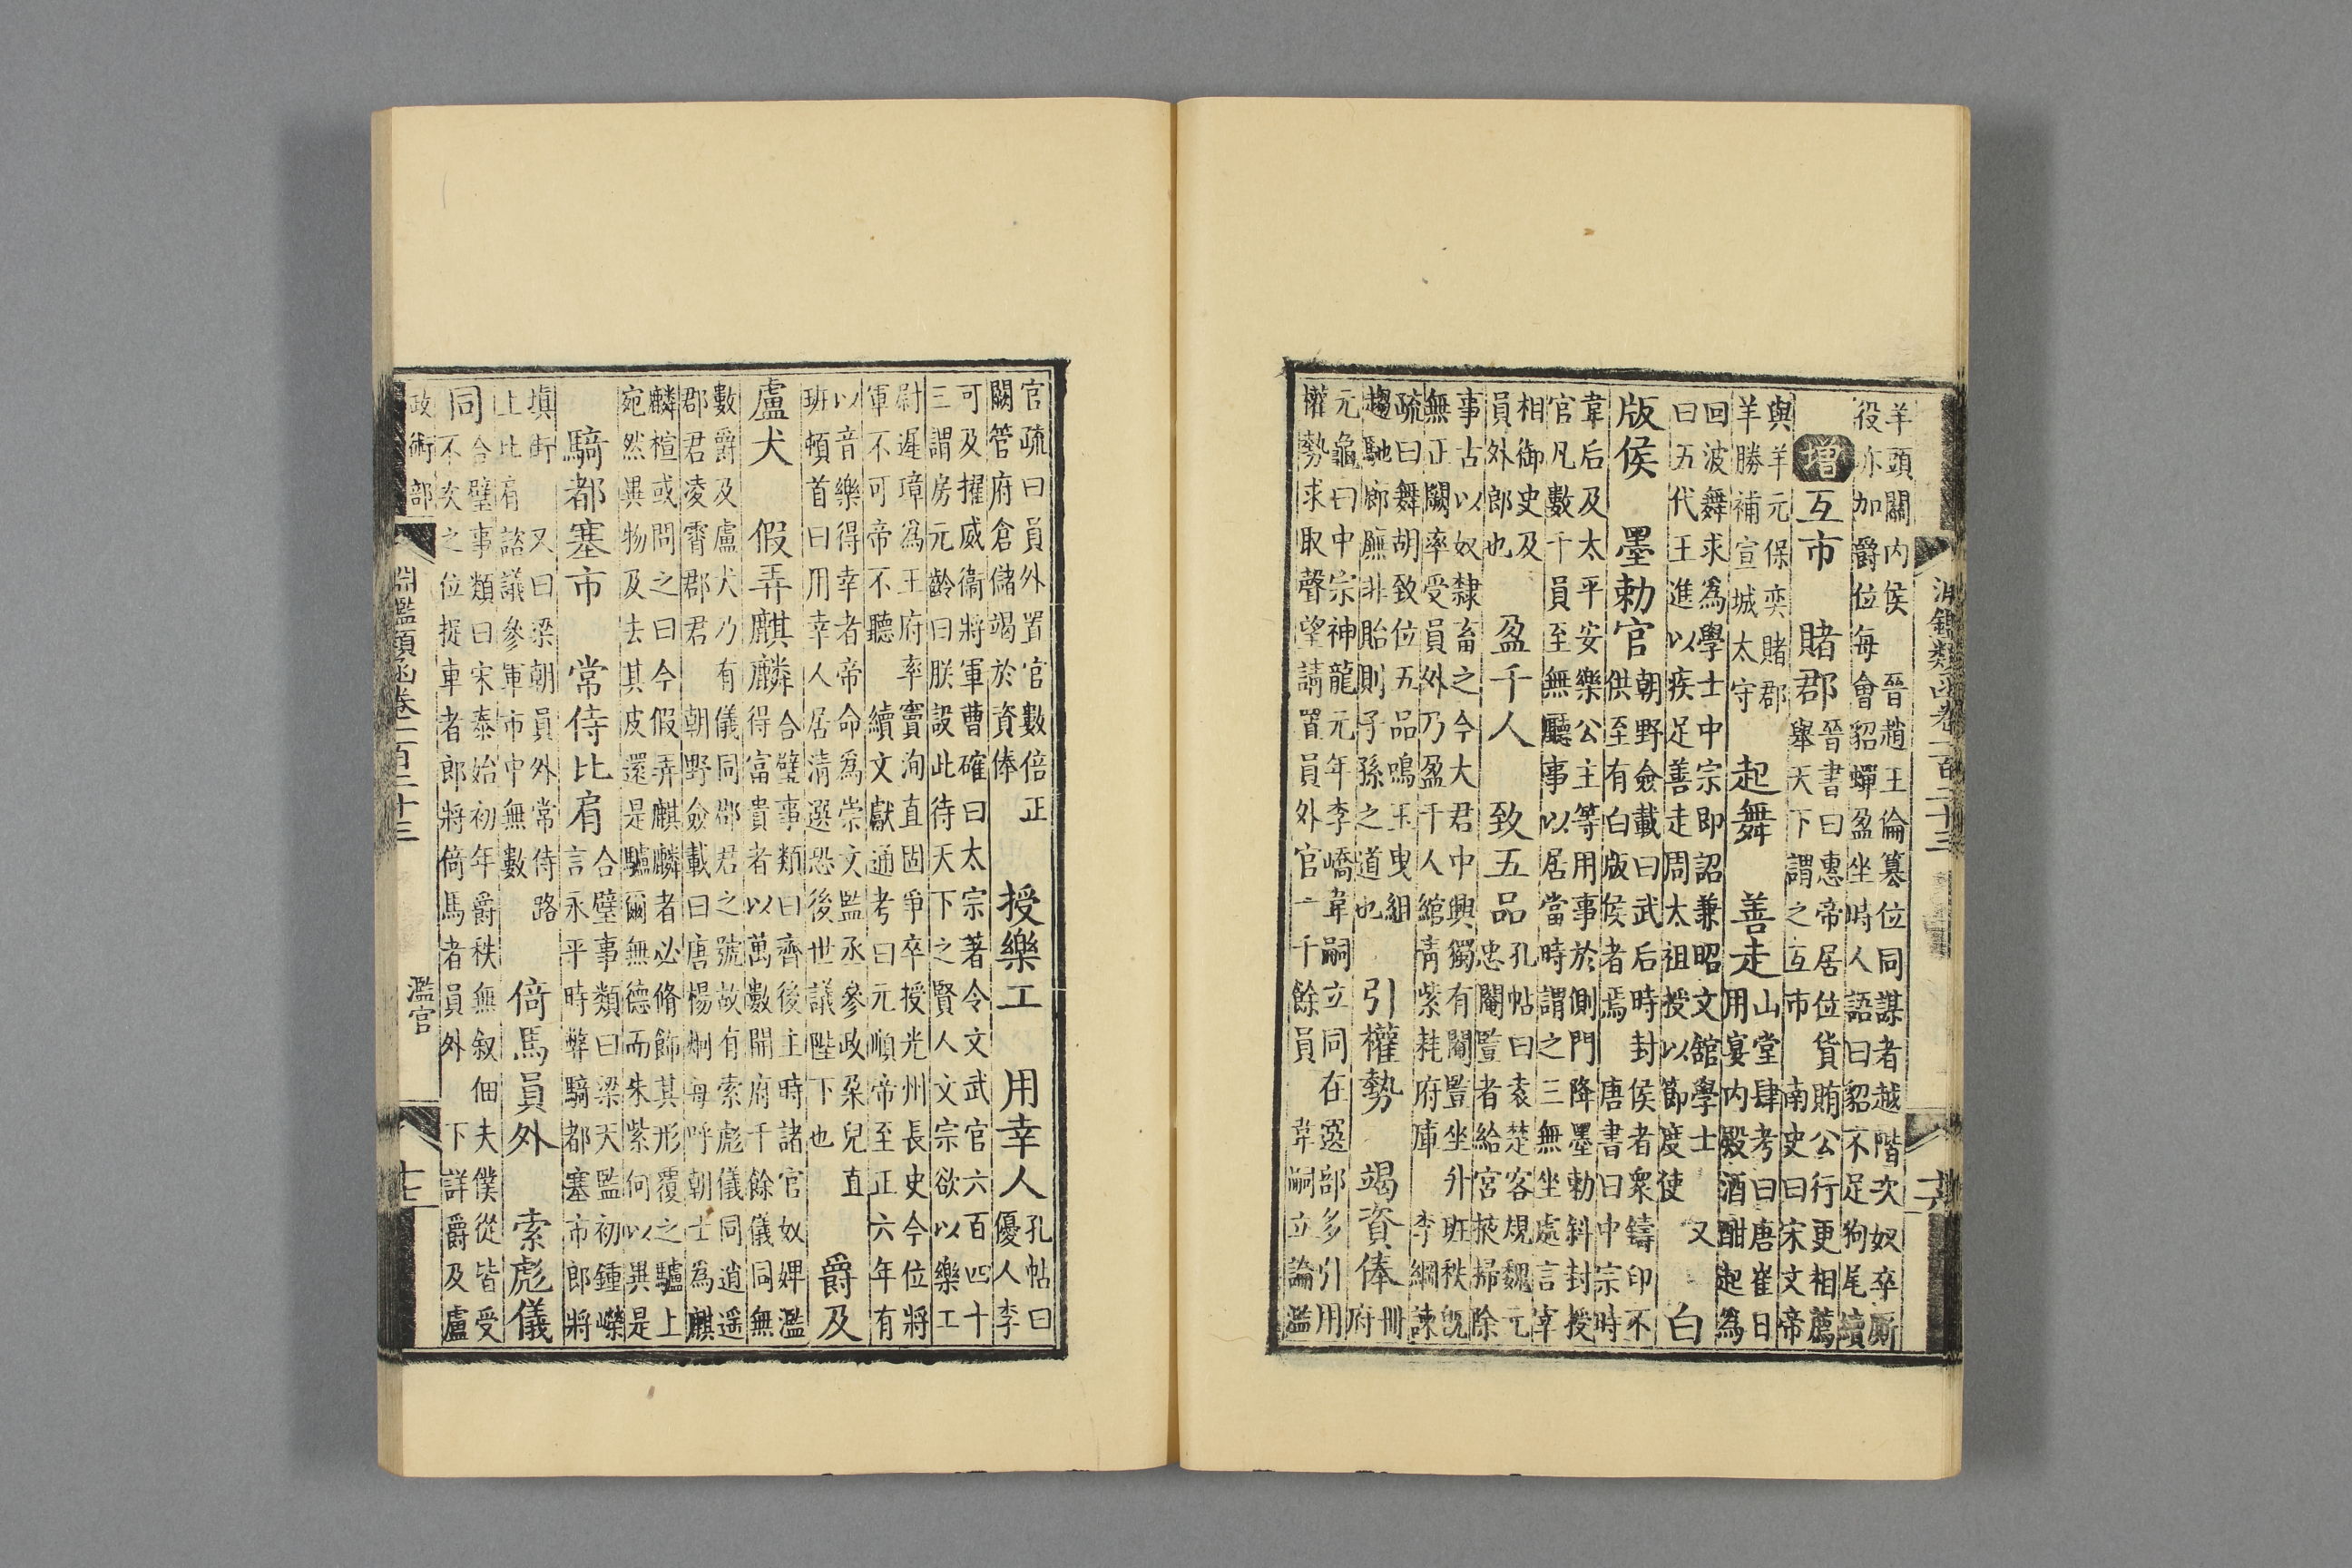 淵鑑類函卷一百二十三 十六
羊頭關内侯 晉趙王倫簒位同謀者越階次奴卒廝
役亦加爵位每會貂蟬盈坐時人語曰貂不足狗尾續
增 互市 賭郡 晉書曰惠帝居位貨賄公行更相薦
舉天下謂之互市 南史曰宋文帝
與羊元保奕賭郡
羊勝補宣城太守 起舞 善走 山堂肆考曰唐崔日
用宴内殿酒酣起爲
回波舞求爲學士中宗即詔兼昭文舘學士 又
曰五代王進以疾足善走周太祖授以節度使 白
版侯 墨勅官 朝野僉載曰武后時封侯者衆鑄印不
供至有白版侯者焉 唐書曰中宗時
韋后及太平安樂公主等用事於側門降墨勅斜封授
官凡數千員至無廳事以居當時謂之三無坐處言宰
相御史及
員外郎也 盈千人 致五品 孔帖曰袁楚客規魏元
忠閹豎者給宮掖掃除
事古以奴隸畜之今大君中興獨有閹豎坐升班秩既
無正闕率受員外乃盈千人綰青紫耗府庫 李綱諫
疏曰舞胡致位五品鳴玉曳組
趨馳廊廡非貽則子孫之道也 引權勢 竭資俸 冊
府
元龜曰中宗神龍元年李嶠韋嗣立同在選部多引用
權勢求取聲望請置員外官一千餘員 韋嗣立論濫
官疏曰員外置官數倍正
闕管府倉儲竭於資俸 授樂工 用幸人 孔帖曰
優人李
可及擢威衞將軍曹確曰太宗著令文武官六百四十
三謂房元齡曰朕設此待天下之賢人文宗欲以樂工
尉遲璋爲王府率竇洵直固爭卒授光州長史今位將
軍不可帝不聽 續文獻通考曰元順帝至正六年有
以音樂得幸者帝命爲崇文監丞參政朶兒直
班頓首曰用幸人居清選恐後世議陛下也 爵及
盧犬 假弄麒麟 合璧事類曰齊後主時諸官奴婢濫
得富貴者以萬數開府千餘儀同無
數爵及盧犬乃有儀同郡君之號故有索彪儀同逍遥
郡君凌霄郡君 朝野僉載曰唐楊烱每呼朝士爲麒
麟楦或問之曰今假弄麒麟者必脩飾其形覆之驢上
宛然異物及去其皮還是驢爾無德而朱紫何以異是
騎都塞市 常侍比肩 合璧事類曰梁天監初鍾嶸
言永平時弊騎都塞市郎將
填街 又曰梁朝員外常侍路
上比肩諮議參軍市中無數 倚馬員外 索彪儀
同 合璧事類曰宋泰始初年爵秩無叙佃夫僕從皆受
不次之位捉車者郎將倚馬者員外 下詳爵及盧
政術部 淵鑑類函卷一百二十三 濫官 十七